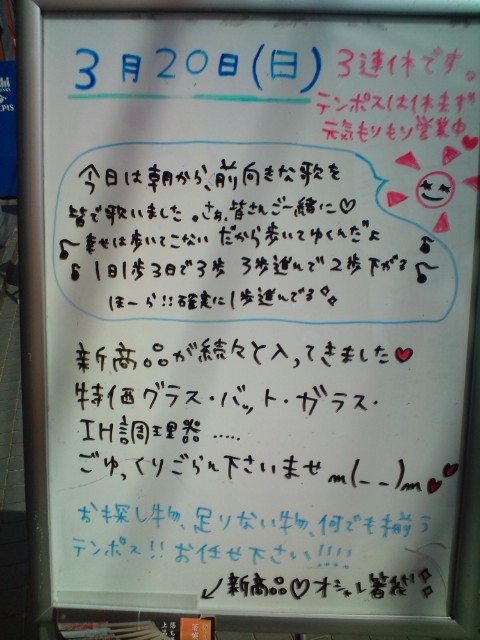 3月20日(日)
3連休です。
テンポスは休まず
元気もりもり営業中
今日は朝から、前向きな歌を
皆で歌いました。さぁ、皆さんご一緒に♡
♪幸せは歩いてこない だから歩いてゆくんだよ♪
♪1日1歩3日で3歩 3歩進んで2歩下がる♪
ほーら!!確実に1歩進んでる
新商品が続々と入ってきました♥
特価グラス・バット・ガラス・
IH調理器 .....
ごゆっくりごらん下さいませ m(_ _)m♥♥
お探し物、足りない物、何でも揃う
テンポス!! お任せ下さい!!!!
↙新商品♡オシャレ箸袋